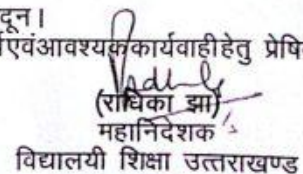 दून।
एवंआवश्यककार्यवाहीहेतु
(राधिका झा)
महानिदेशक
विद्यालयी शिक्षा उत्तराखण्ड